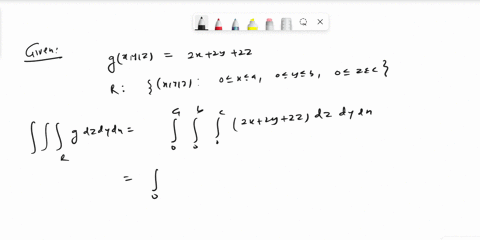 Given: g(x,y,z) = 2x+2y+2z
R: {(x,y,z): 0≤x≤a, 0≤y≤b, 0≤z≤c}
∭_R g dz dy dx = ∫_0^a ∫_0^b ∫_0^c (2x+2y+2z) dz dy dx
= ∫_0